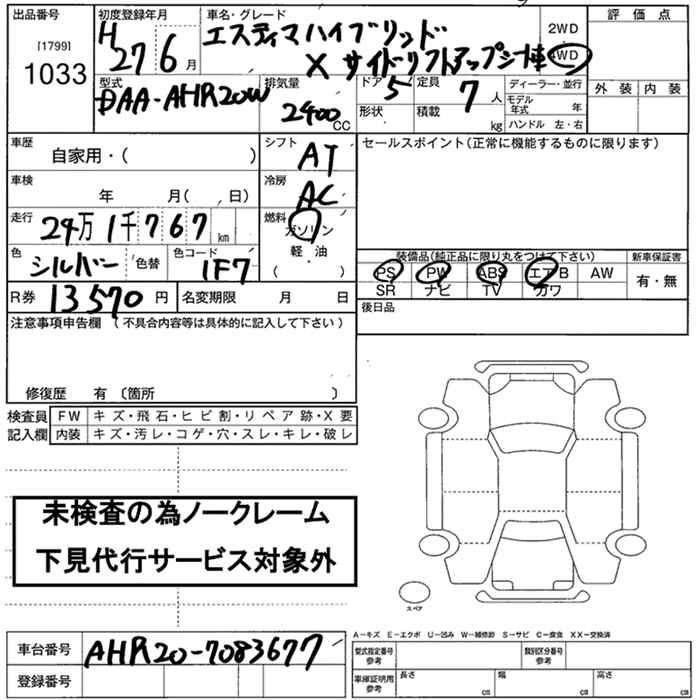 出品番号
[1799]
1033
初度登録年月
H 27 6 月
車名・グレード
エスティマハイブリッド
X サイドリフトアップシート車
2WD
4WD
評価点
外装 内装
型式
DAA-AHR20W
排気量
2400 CC
ドア 5
形状
定員 7 人
積載 kg
ディーラー・並行
モデル年式 年
ハンドル 左・右
車歴
自家用・( )
シフト
AT
セールスポイント(正常に機能するものに限ります)
車検
年 月( 日)
冷房
AC
走行
24万1千767 km
燃料
ガソリン
軽・油
( )
色
シルバー
色替
色コード
1F7
装備品(純正品に限り丸をつけて下さい)
新車保証書
PS PW ABS エアB AW
SR ナビ TV カワ
有・無
R券 13570 円
名変期限 月 日
後日品
注意事項申告欄 (不具合内容等は具体的に記入して下さい)
修復歴 有 〔箇所 〕
検査員
記入欄
FW キズ・飛石・ヒビ割・リペア跡・X要
内装 キズ・汚レ・コゲ・穴・スレ・キレ・破レ
未検査の為ノークレーム
下見代行サービス対象外
スペア
A−キズ E−エクボ U−凹み W−補修跡 S−サビ C−腐食 XX−交換済
車台番号 AHR20-7083677
登録番号
型式指定番号
参考
類別区分番号
参考
車庫証明用
参考
長さ cm
幅 cm
高さ cm